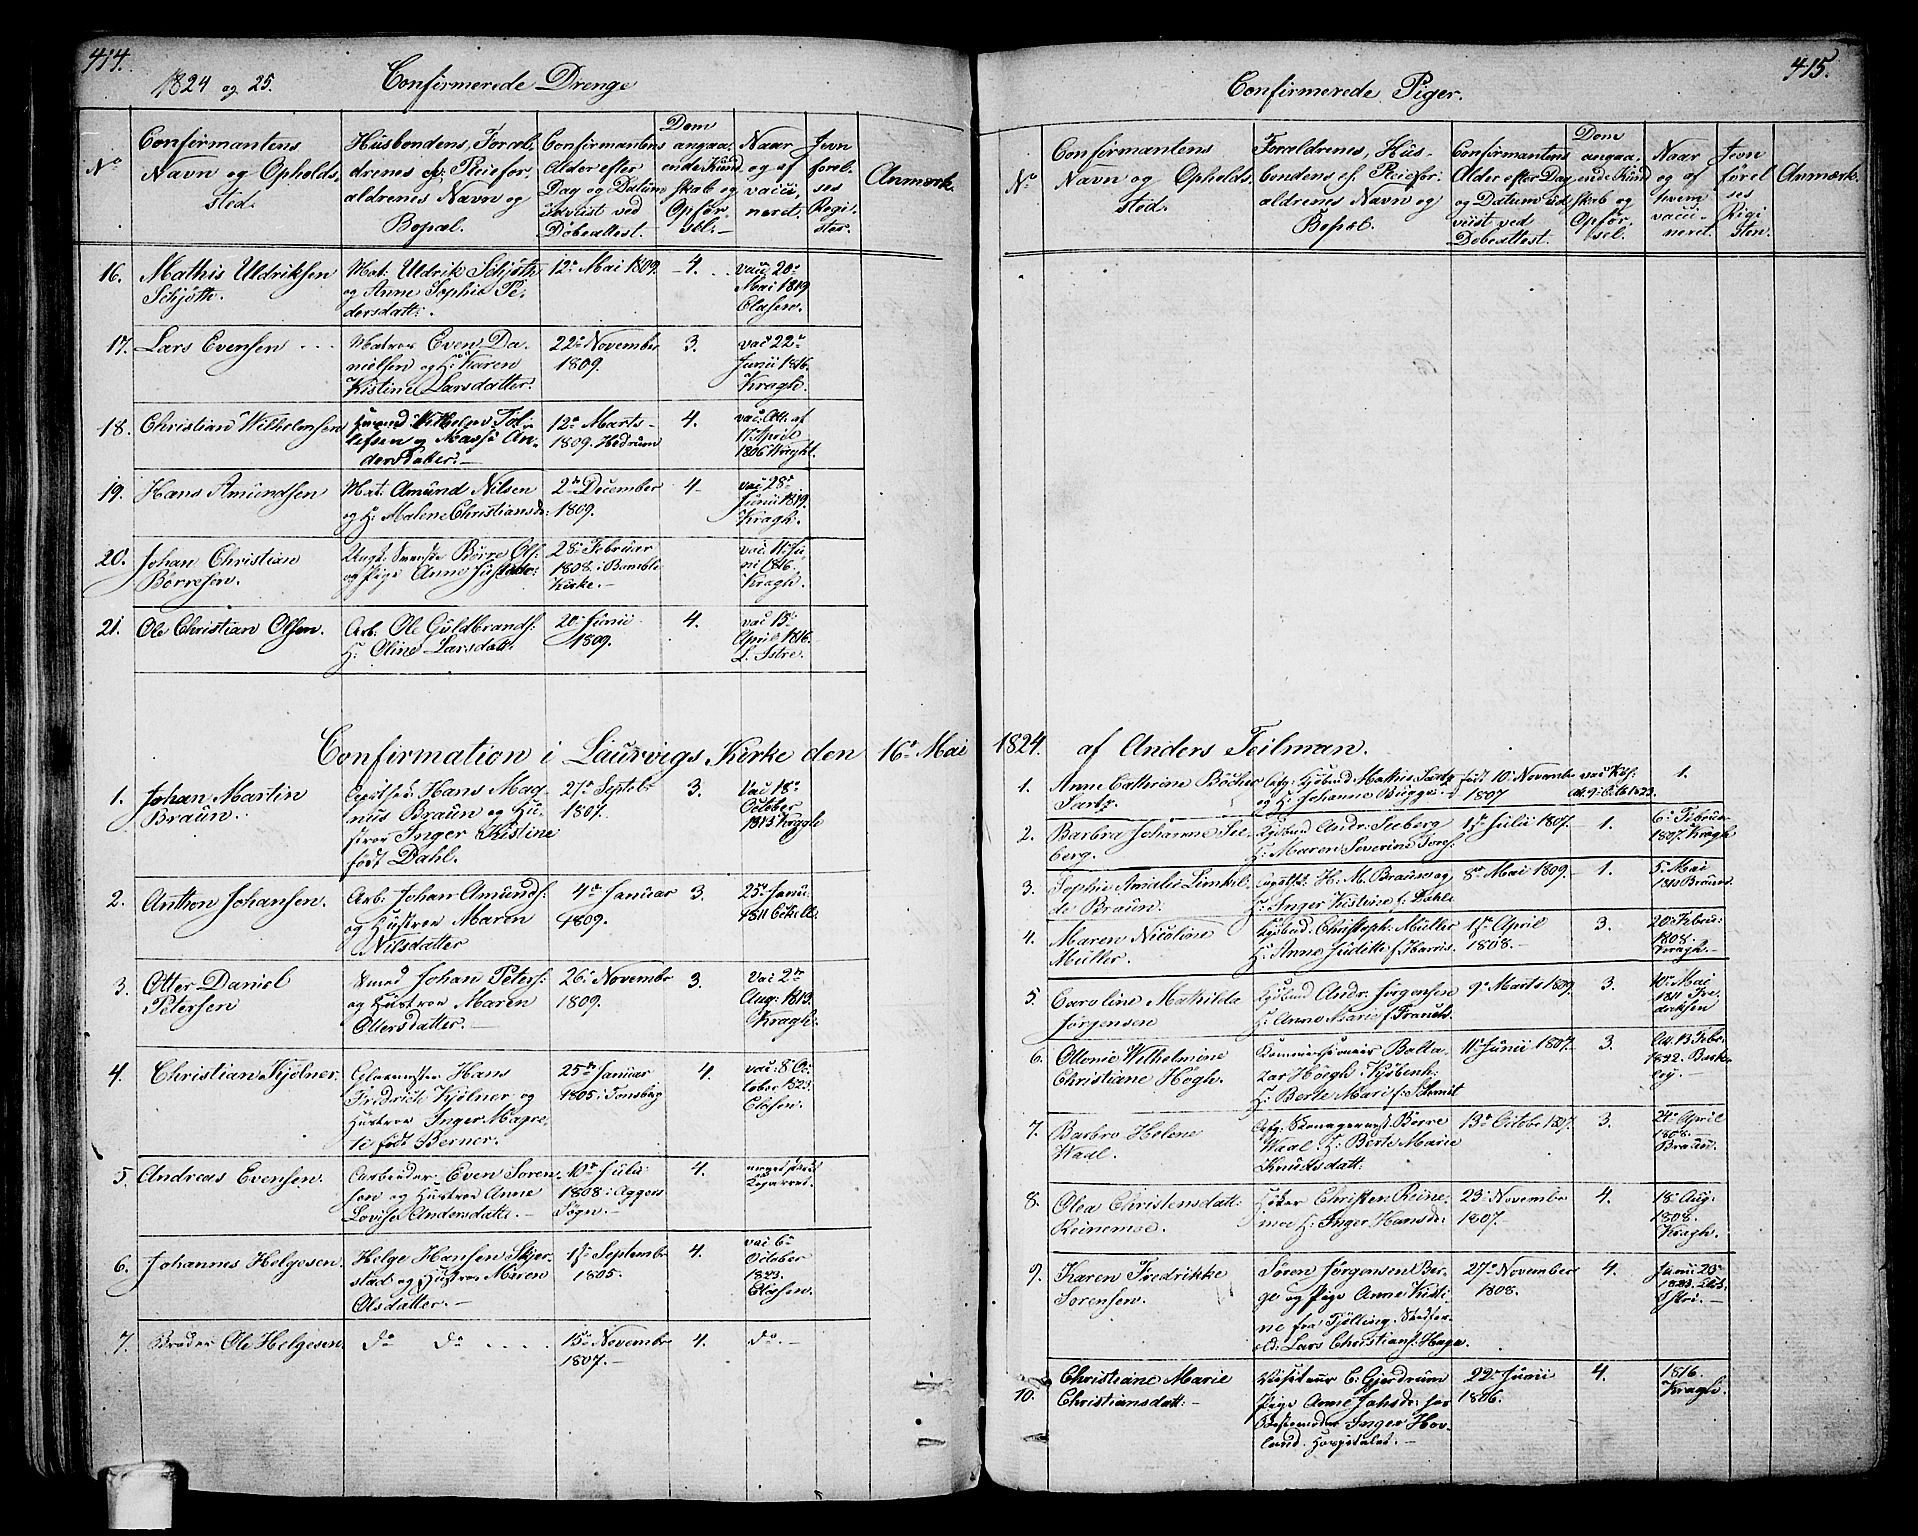 414.
1824 og 25. Confirmerede Drenge
No
Confirmantens
Navn og Opholds,
sted.
Husbondens, Foræl,
drenes ell: Pleiefor,
ældrenes Navn og
Bopæl.
Confirmantens
Alder efter
Dag og Datum
udviist ved
Døbeattest.
Dom
angaa,
ende Kund,
skab og
Opfør,
sel.
Naar
og af
vacci,
neret.
Jevn
førel,
ses
Regi,
ster.
Anmærk.
16. Mathis Uldriksen
Schjøtte.
Mat: Uldrik Schjøth
og Anne Sophie Pe,
dersdatt:
12te Mai 1809.
4.
vac: 20de
Mai 1819
Olasen.
17. Lars Evensen
Matros Even Da,
nielsen og H: Karen
Kistine Larsdatter.
22de November
1809.
3.
vac 22de
Junii 1816.
Kragh.
18. Christian Wilhelmsen
Wilhelm Tol,
lefsen og Masse An,
dersdatter.
12te Marts
1809. Hedrum
4.
vac: Att. af
17 April
1806 Kraght.
19. Hans Amundsen
Mat. Amund Nilsen
og H: Malene Christiansd:
2den December
1809.
4
vac 28de
Junii 1819.
Kragh.
20. Johan Christian
Børresen.
Ungk. Børre Ols:
og Pige Anne
28de Februar
1808. i Bamble
Kirke.
vac. 11te Ju,
ni 1816.
Kragh.
21. Ole Christian Olsen.
Arb. Ole Guldbrands:
H: Oline Larsdatt.
20de Junii
1809.
4.
vac 15de
April 1816.
L. Istre.
Confirmation i Laurvigs Kirke den 16de Mai
1. Johan Martin
Braun.
Hans Mag,
nus Braun og Hu,
stroe Inger Kistine
født Dahl.
27de Septbr
1807.
3.
Vac 18de
October
1813 Kragh
2. Anthon Johansen.
Arb: Johan Amunds:
og Hustroe Maren
Nilsdatter
4de Januar
1809.
3.
25de Janu:
1811
3. Otter Daniel
Petersen
Smed Johan Peters:
og Hustroe Maren
Ottersdatter.
26de Novembr
1809.
3.
Vac 2den
Aug: 1813.
Kragh.
4. Christian Kjølner.
Glarmester Hans
Fredrich Kjølner og
Hustroe Inger Magre,
te født Berner.
25de Januar
1805. Tønsberg
4.
vac: 8 Oc,
tober 1823.
Olasen.
5. Andreas Evensen.
Arbeider Even Søren,
sen og Hustroe Anne
Lovise Andersdatt.
10de Julii
1808. i Aggers
Sogn.
4.
6. Johannes Helgesen.
Helge Hansen Skjer,
stad og Hustroe Maren
Olsdatter.
1ste Septembr
1805.
4.
vac 6te
October
1823.
Olasen.
7. Broder Ole Helgesen.
do do
15de Novembr
1807.
4.
do.
415.
Confirmerede Piger.
No
Confirmantens
Navn og Opholds,
sted.
Forældrenes, Hus,
bondens ell. Pleiefor,
ældrenes Navn og
Bopæl.
Confirmantens
Alder efter Dag
og Datum ud,
viist ved
Døbeattest.
Dom
angaa,
ende Kund,
skab og
Opfør,
sel.
Naar
og af
hvem
vacci,
neret.
Jevn
førel,
ses
Regi,
ster.
Anmærk.
1824. af Anders Teilman.
1. Anne Cathrine Bøcher
Sartz.
Afg: Kjøbmd Mathis Sartz
og H: Johanne Bugge.
født 10de Novembr
1807
1.
2. Barbra Johanne See,
berg.
Kjøbmd Andr: Seeberg
H: Maren Severine Tors:
1ste Julii 1807.
1.
6te Februar
1807. Kragh
3. Sophie Amalie
de Braun.
H. M. Braun og
H: Inger Kistine f: Dahl
8de Mai 1809.
1.
5. Mai
1810 Braun.
4. Maren Nicoline
Müller.
Kjøbmd. Christoph: Müller
H: Anne Juditte f.
1ste April
1808.
3.
20de Febru:
1808.
Kragh.
5. Caroline Mathilde
Jørgensen
Kjøbmd Andr. Jørgensen
H: Anne Marie f.
9de Marts 1809.
3.
10de Mai
1811 Fre,
driksen
6. Ottonie Wilhelmine
Christiane Høgh.
Balta,
zar Høegh i Kjøbenh:
H: Berte Marie f: Schmit
11te Junii 1807.
3.
Att. 13 Febr.
1822.
7. Barbro Helene
Waal.
Afg: Børre
Waal. H: Berte Marie
Knudsdatt:
13de Octobr 1807.
3.
24de April
1808.
Braun.
8. Olea Christensdatt:
Reinemoe.
Christen Reine,
moe H: Inger Hansd:
23de Novembr
1807.
4.
18de Aug.
1808.
Kragh.
9. Karen Fredrikke
Sørensen.
Søren Jørgensen Ber,
ge og Pige Anne Kisti,
ne fra Tjølling. Stedfor,
æld: Lars Christians: Hage.
27de November
1808.
4.
Junii 20de
Istre.
10. Christiane Marie
Christiansdatt:
Visiteur C: Gjerdrum
Pige Anne hos
Bestemoder Inger Hov,
land. Hospitalet.
22de Junii
1806.
4.
1816.
Kragh.